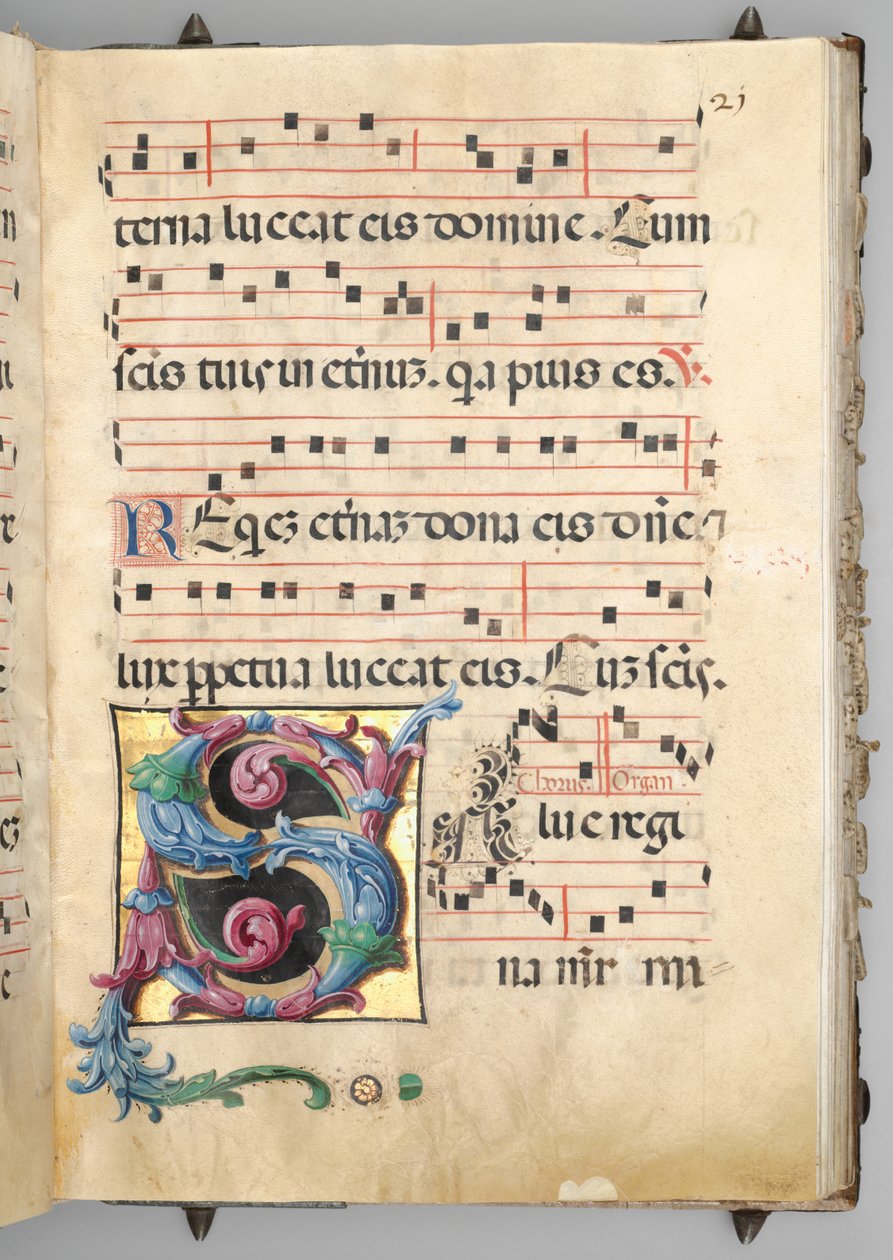 21
terna luceat eis domine. Cum
scis tuis in eternuz. qa puis es. V.
REqez eternaz dona eis dne. 7
lux ppetua luceat eis. Cuz scis.
Chorus. Organ
SAlue regi
na mir mi=